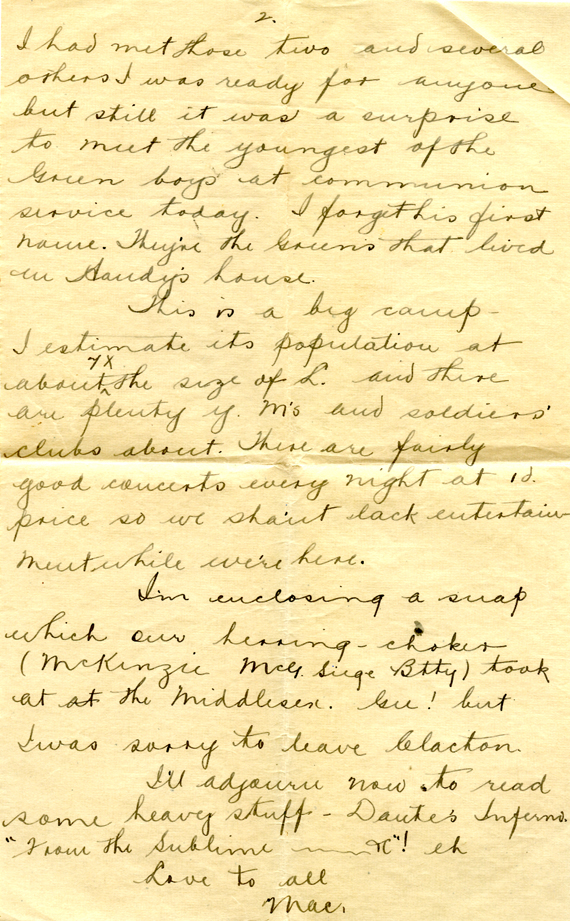 2.
I had met those two and several
others I was ready for anyone
but still it was a surprise
to meet the youngest of the
Green boys at communion
service today. I forget his first
name. They're the Greens that lived
in Handy's house.
This is a big camp -
I estimate its population at
7X
about the size of L. and there
are plenty Y. M's and soldiers'
clubs about. There are fairly
good concerts every night at 1d.
price so we sha'nt lack entertain
ment while we're here.
I'm enclosing a snap
which our herring-choker
(McKinzie McG. Siege Btty) took
at at the Middlesex. Gee! but
I was sorry to leave Clacton.
I'll adjourn now to read
some heavy stuff - Dante's Inferno.
"From the Sublime"! eh
Love to all
Mac.